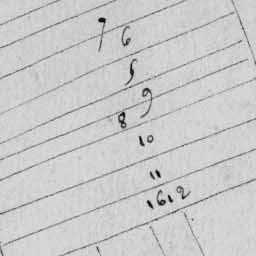 7 6
5
8 9
10
11
1612